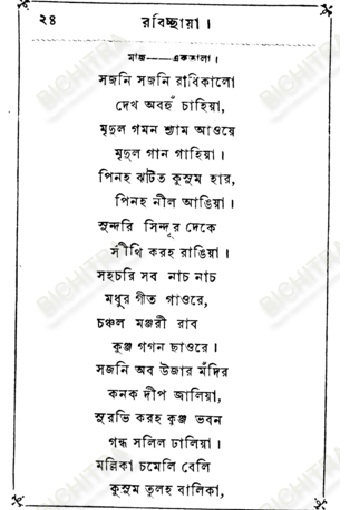 ২৪ রবিচ্ছায়া।
মাজ——একতালা।
সজনি সজনি রাধিকালো
দেখ অবহুঁ চাহিয়া,
মৃদুল গমন শ্যাম আওয়ে
মৃদুল গান গাহিয়া।
পিনহ ঝটিত কুসুম হার,
পিনহ নীল আঙিয়া।
সুন্দরি সিন্দূর দেকে
সীঁথি করহ রাঙিয়া॥
সহচরি সব নাচ নাচ
মধুর গীত গাওরে,
চঞ্চল মঞ্জরী রাব
কুঞ্জ গগন ছাওরে।
সজনি অব উজার মঁদির
কনক দীপ জালিয়া,
সুরভি করহ কুঞ্জ ভবন
গন্ধ সলিল ঢালিয়া।
মল্লিকা চমেলি বেলি
কুসুম তুলহ বালিকা,
BICHITRA
BICHITRA
BICHITRA
BICHITRA
BICHITRA
BICHITRA